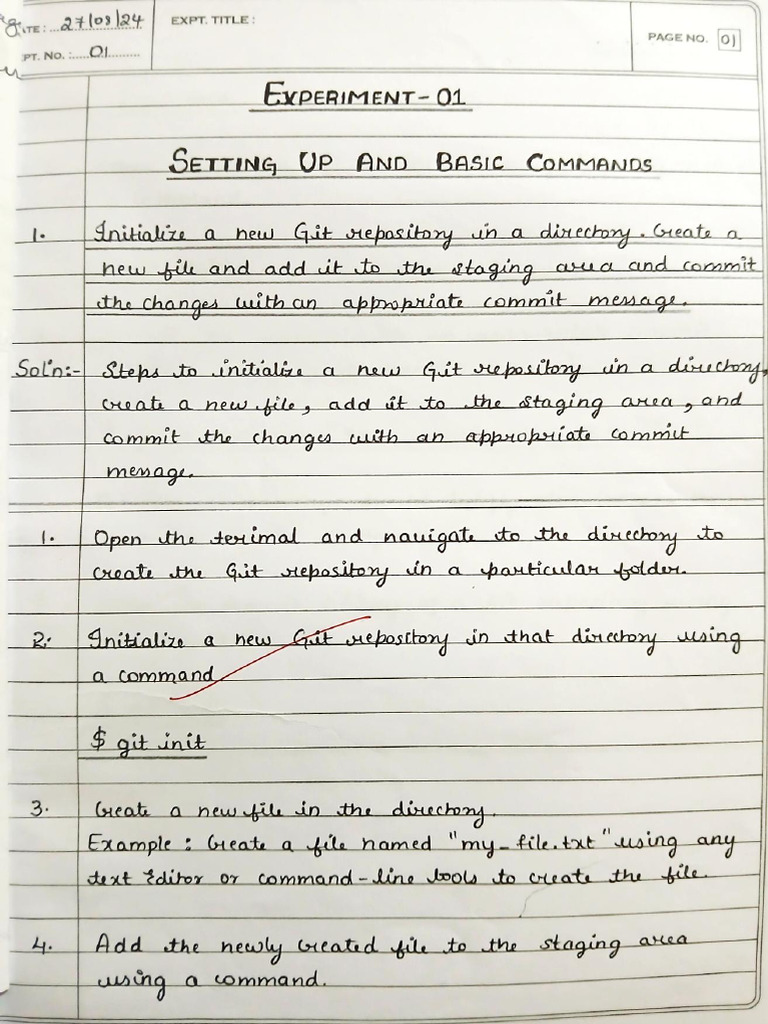 DATE: 27/08/24
EXPT. TITLE:
PAGE NO. 01
PT. NO.: 01
EXPERIMENT-01
SETTING UP AND BASIC COMMANDS
1. Initialize a new Git repository in a directory. Create a
new file and add it to the staging area and commit
the changes with an appropriate commit message.
Sol'n:- Steps to initialize a new Git repository in a directory,
create a new file, add it to the staging area, and
commit the changes with an appropriate commit
message.
1. Open the terimal and navigate to the directory to
create the Git repository in a particular folder.
2. Initialize a new Git repository in that directory using
a command
$ git init
3. Create a new file in the directory.
Example: Create a file named "my_file.txt" using any
text Editor or command-line tools to create the file.
4. Add the newly created file to the staging area
using a command.